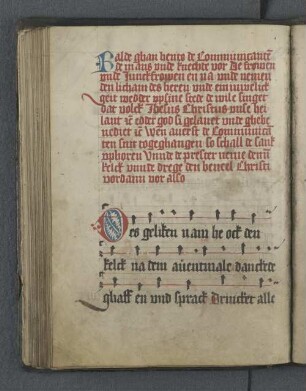 Balde ghan hento de Communicanten
de mans vnde knechte vor de frowen
vnde Junckfrowen en na vnde nemen
den licham des heren vnde ein iuwelick
geit wedder vp sine stede de wile singet
dat volck Jhesus Christus vnse hei
lant edder god si gelauet vnde ghebe
nediet Wen auerst de Communican
ten sint togeghangen so schall de sank
vphoren Vnnde de prester neme denn
kelck vnnde drege den bencel Christi
vordann vor also
Des geliken nam he ock den
kelck na dem auentmale danckede
ghaff en vnd sprack Drincket alle